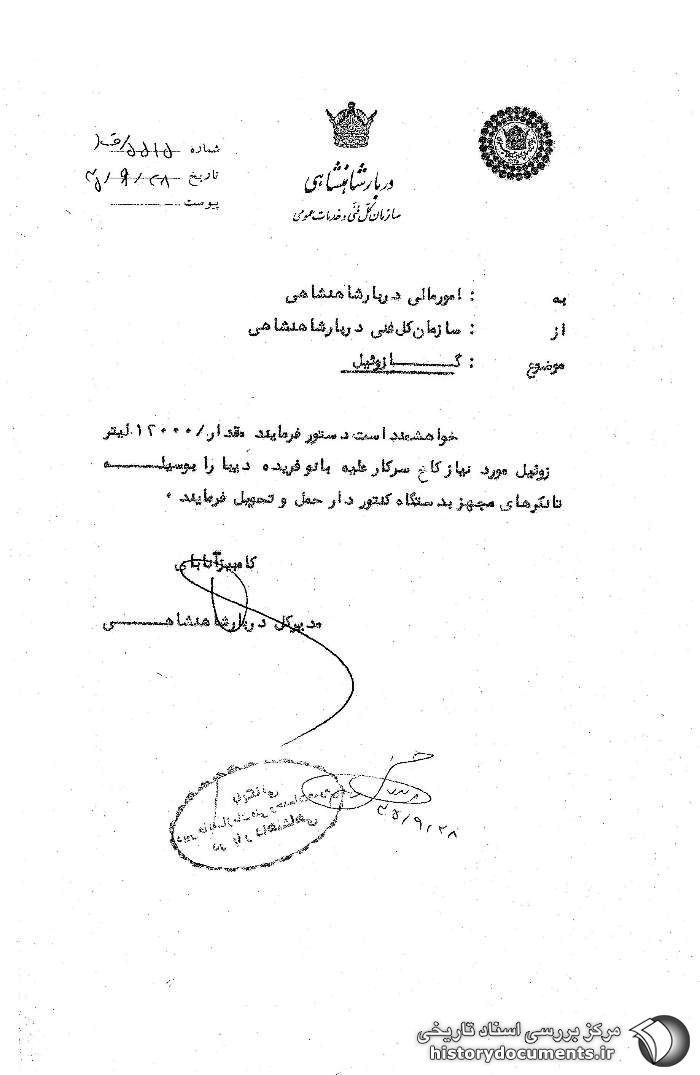 دربار شاهنشاهی
سازمان کل فنی و خدمات عمومی
شماره
تاریخ ۲۸/۹/۳۵
پیوست
به : امور مالی دربار شاهنشاهی
از : سازمان کل فنی دربار شاهنشاهی
موضوع : گازوئیل
خواهشمند است دستور فرمایند مقدار ۱۲۰۰۰/ لیتر
زوئیل مورد نیاز کاخ سرکار علیه بانو فریده دیبا را بوسیله
تانکرهای مجهز بدستگاه کنتور دار حمل و تحویل فرمایند .
کامبیز آتابای
مدیر کل دربار شاهنشاهی
۳۵/۹/۲۸
مرکز بررسی اسناد تاریخی
historydocuments.ir